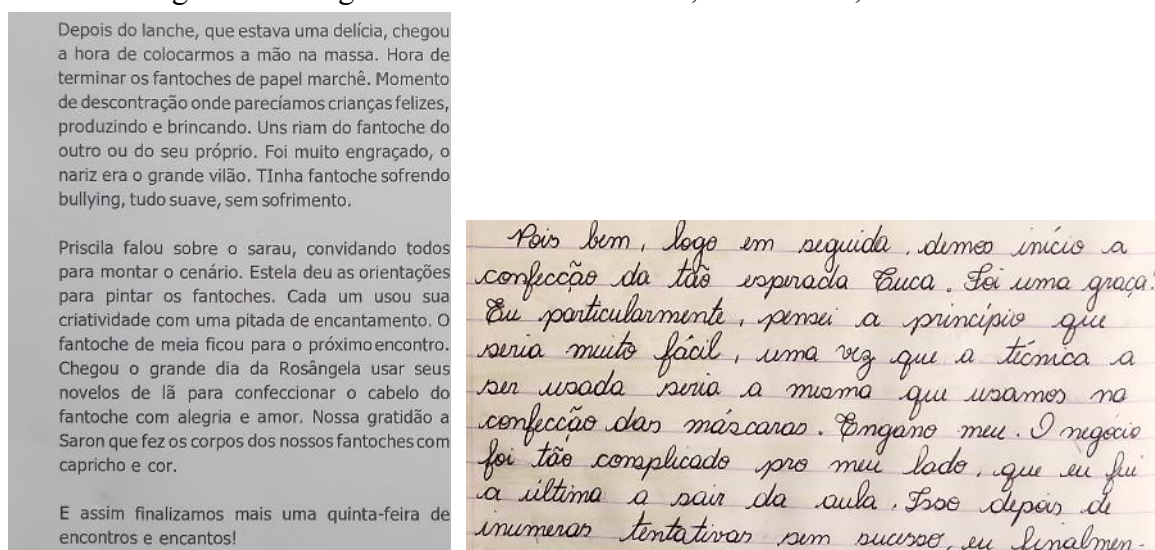 Depois do lanche, que estava uma delícia, chegou
a hora de colocarmos a mão na massa. Hora de
terminar os fantoches de papel marchê. Momento
de descontração onde parecíamos crianças felizes,
produzindo e brincando. Uns riam do fantoche do
outro ou do seu próprio. Foi muito engraçado, o
nariz era o grande vilão. TInha fantoche sofrendo
bullying, tudo suave, sem sofrimento.
Priscila falou sobre o sarau, convidando todos
para montar o cenário. Estela deu as orientações
para pintar os fantoches. Cada um usou sua
criatividade com uma pitada de encantamento. O
fantoche de meia ficou para o próximo encontro.
Chegou o grande dia da Rosângela usar seus
novelos de lã para confeccionar o cabelo do
fantoche com alegria e amor. Nossa gratidão a
Saron que fez os corpos dos nossos fantoches com
capricho e cor.
E assim finalizamos mais uma quinta-feira de
encontros e encantos!
Pois bem, logo em seguida, demos início a
confecção da tão esperada Cuca. Foi uma graça!
Eu particularmente, pensei a princípio que
seria muito fácil, uma vez que a técnica a
ser usada seria a mesma que usamos na
confecção das máscaras. Engano meu. O negócio
foi tão complicado pro meu lado, que eu fui
a última a sair da aula. Isso depois de
inumeras tentativas sem sucesso, eu finalmen-